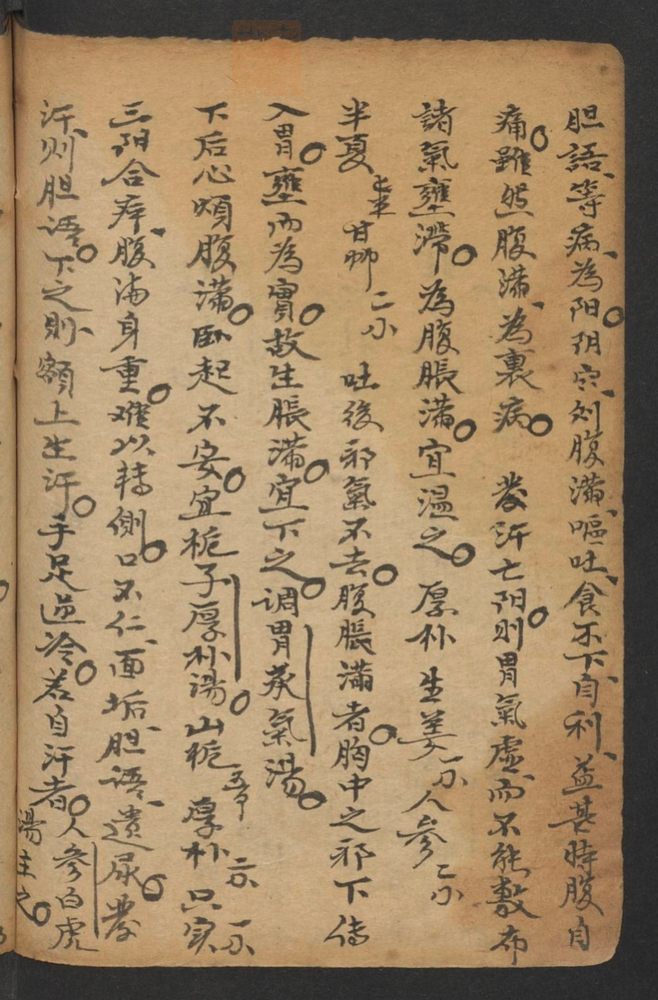 胆語等病為阳阴症则腹满嘔吐食不下自利益甚時腹自
痛。雖然腹满為裏病。 發汗亡阳。则胃氣虚而不能敷布
諸氣壅滯。為腹脹满。宜温之。厚朴 生姜 人參
半夏 甘艸 二小 吐後邪氣不去。腹脹满者。胸中之邪下傳
入胃。壅而為實。故生脹满。宜下之。调胃承氣湯。
下后心煩腹满。卧起不安。宜栀子厚朴湯。山栀 厚朴 只实
三阳合病腹满身重。难以转侧。口不仁面垢胆語遺尿。發
汗则胆語。下之则額上生汗。手足逆冷。若自汗者。人参白虎
湯主之。